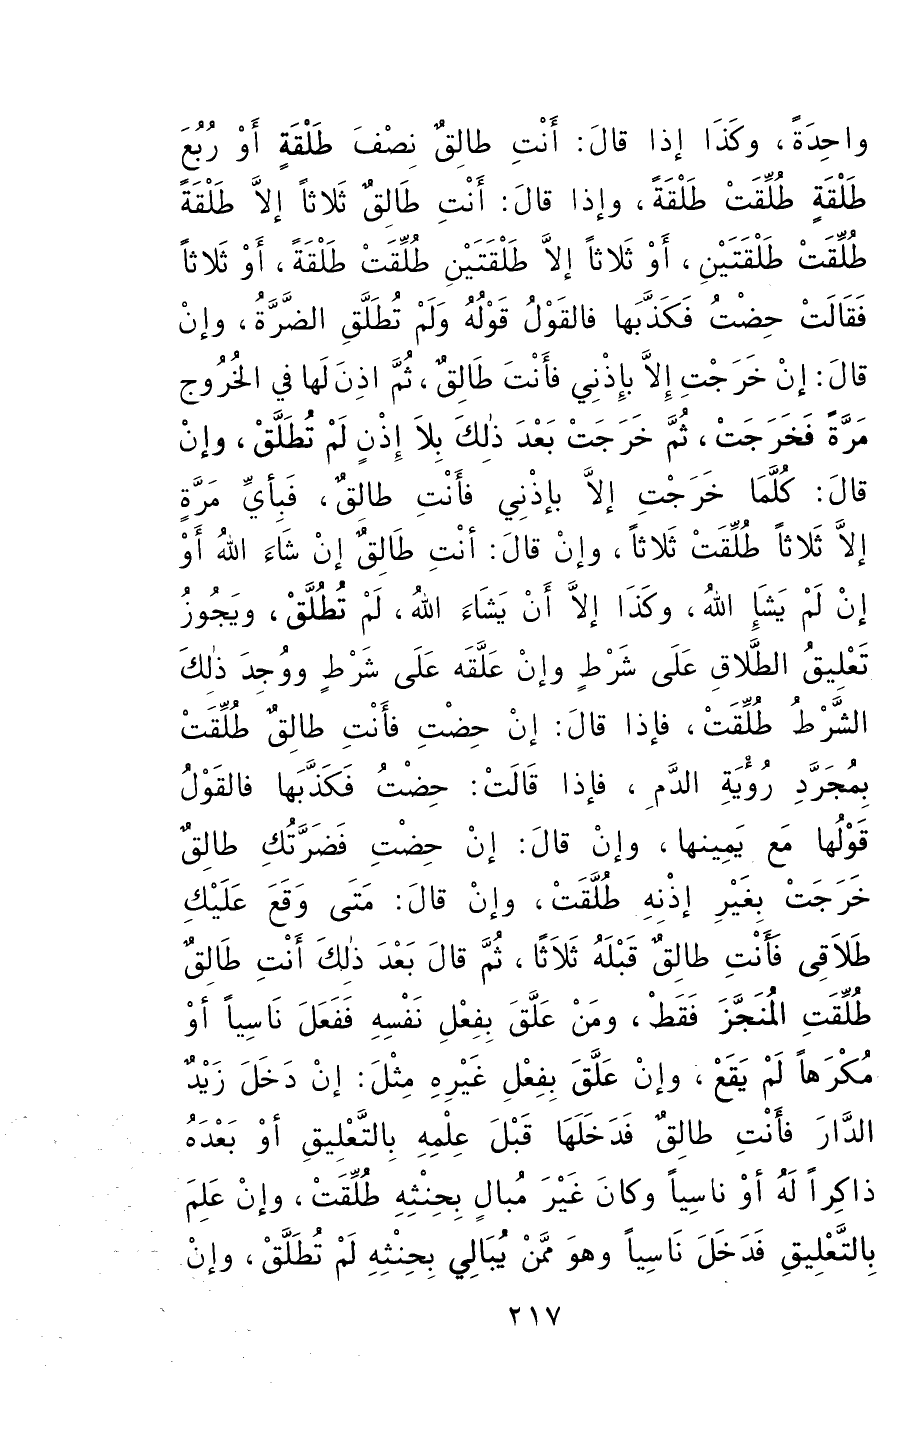 واحِدَةً ، وكَذَا إذا قالَ: أَنْتِ طالِقٌ نِصْفَ طَلْقَةٍ أَوْ رُبُعَ
طَلْقَةٍ طُلِّقَتْ طَلْقَةً ، وإذا قالَ: أَنْتِ طَالِقٌ ثَلاثاً إلاَّ طَلْقَةً
طُلِّقَتْ طَلْقَتَيْنِ ، أَوْ ثَلاثاً إلاَّ طَلْقَتَيْنِ طُلِّقَتْ طَلْقَةً ، أَوْ ثَلاثاً
فَقَالَتْ حِضْتُ فَكَذَّبَها فالقَوْلُ قَوْلُهُ وَلَمْ تُطَلَّقِ الضَّرَّةُ ، وإنْ
قالَ: إنْ خَرَجْتِ إلاَّ بِإِذْنِي فأَنْتَ طَالِقٌ ، ثُمَّ اذِنَ لَها في الخُرُوجِ
مَرَّةً فَخَرَجَتْ ، ثُمَّ خَرَجَتْ بَعْدَ ذٰلِكَ بِلاَ إِذْنٍ لَمْ تُطَلَّقْ ، وإنْ
قالَ: كُلَّمَا خَرَجْتِ إلاَّ بإذْنِي فأَنْتِ طالِقٌ ، فَبِأيِّ مَرَّةٍ
إلاَّ ثَلاثاً طُلِّقَتْ ثَلاثاً ، وإنْ قالَ: أنْتِ طَالِقٌ إنْ شَاءَ اللهُ أَوْ
إنْ لَمْ يَشَإِ اللهُ ، وكَذَا إلاَّ أَنْ يَشَاءَ اللهُ ، لَمْ تُطُلَّقْ ، ويَجُوزُ
تَعْلِيقُ الطَّلاقِ عَلَى شَرْطٍ وإنْ عَلَّقَه عَلَى شَرْطٍ ووُجِدَ ذٰلِكَ
الشَّرْطُ طُلِّقَتْ ، فإذا قالَ: إنْ حِضْتِ فأَنْتِ طالِقٌ طُلِّقَتْ
بِمُجَرَّدِ رُؤْيَةِ الدَّمِ ، فإذا قَالَتْ: حِضْتُ فَكَذَّبَها فالقَوْلُ
قَوْلُها مَع يَمِينها ، وإنْ قالَ: إنْ حِضْتِ فَضَرَّتُكِ طالِقٌ
خَرَجَتْ بِغَيْرِ إذْنِهِ طُلَّقَتْ ، وإنْ قالَ: مَتَى وَقَعَ عَلَيْكِ
طَلاَقِى فَأَنْتِ طالِقٌ قَبْلَهُ ثَلاَثًا ، ثُمَّ قالَ بَعْدَ ذٰلِكَ أَنْتِ طَالِقٌ
طُلِّقَتِ المُنَجَّزَ فَقَطْ ، ومَنْ عَلَّقَ بِفِعْلِ نَفْسِهِ فَفَعَلَ نَاسِياً أوْ
مُكْرَهاً لَمْ يَقَعْ ، وإنْ عَلَّقَ بِفِعْلِ غَيْرِهِ مِثْلَ: إنْ دَخَلَ زَيْدٌ
الدَّارَ فأَنْتِ طالِقٌ فَدَخَلَهَا قَبْلَ عِلْمِهِ بِالتَّعْلِيقِ أوْ بَعْدَهُ
ذاكِراً لَهُ أوْ ناسِياً وكانَ غَيْرَ مُبالٍ بِحِنْثِهِ طُلِّقَتْ ، وإنْ عَلِمَ
بِالتَّعْلِيقِ فَدَخَلَ نَاسِياً وهوَ مِمَّنْ يُبَالِي بِحِنْثِهِ لَمْ تُطَلَّقْ ، وإنْ
٢١٧